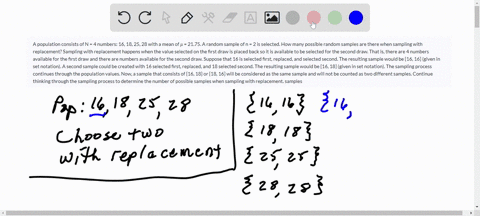 A population consists of N = 4 numbers: 16, 18, 25, 28 with a mean of μ = 21.75. A random sample of n = 2 is selected. How many possible random samples are there when sampling with
replacement? Sampling with replacement happens when the value selected on the first draw is placed back so it is available to be selected for the second draw. That is, there are 4 numbers
available for the first draw and there are numbers available for the second draw. Suppose that 16 is selected first, replaced, and selected second. The resulting sample would be [16, 16] (given in
set notation). A second sample could be created with 16 selected first, replaced, and 18 selected second. The resulting sample would be [16, 18] (given in set notation). The sampling process
continues through the population values. Now, a sample that consists of [16, 18] or [18, 16] will be considered as the same sample and will not be counted as two different samples. Continue
thinking through the sampling process to determine the number of possible samples when sampling with replacement. samples
Pop: 16, 18, 25, 28
Choose two
with replacement
{16, 16} {16,
{18, 18}
{25, 25}
{28, 28}